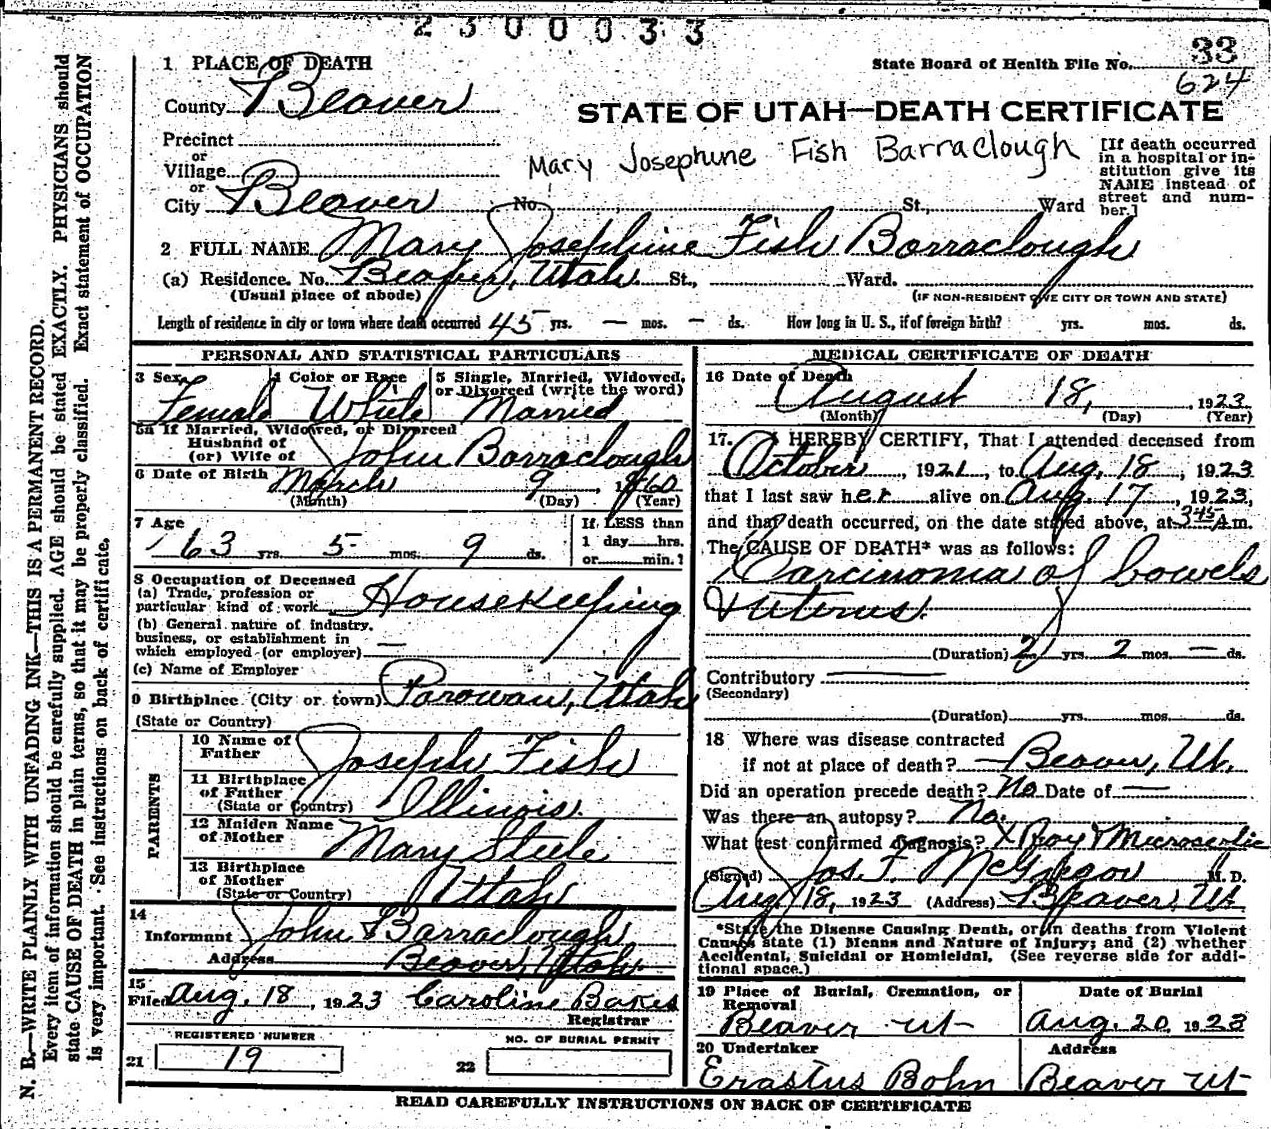 2300033
33
State Board of Health File No.
624
1 PLACE OF DEATH
County Beaver
STATE OF UTAH—DEATH CERTIFICATE
Precinct
or
Village
or
City Beaver No. St., Ward
Mary Josephine Fish Barraclough
[If death occurred
in a hospital or in-
stitution give its
NAME instead of
street and num-
ber.]
2 FULL NAME Mary Josephine Fish Barraclough
(a) Residence. No. Beaver, Utah. St., Ward.
(Usual place of abode) (IF NON-RESIDENT GIVE CITY OR TOWN AND STATE)
Length of residence in city or town where death occurred 45 yrs. — mos. — ds. How long in U. S., if of foreign birth? yrs. mos. ds.
PERSONAL AND STATISTICAL PARTICULARS
3 Sex 4 Color or Race 5 Single, Married, Widowed,
or Divorced (write the word)
Female White Married
5a If Married, Widowed, or Divorced
Husband of
(or) Wife of John Barraclough
6 Date of Birth March 9, 1860
(Month) (Day) (Year)
7 Age
63 yrs. 5 mos. 9 ds.
If LESS than
1 day hrs.
or min.?
8 Occupation of Deceased
(a) Trade, profession or
particular kind of work Housekeeping
(b) General nature of industry,
business, or establishment in
which employed (or employer) —
(c) Name of Employer
9 Birthplace (City or town) Parowan, Utah
(State or Country)
PARENTS
10 Name of
Father Joseph Fish
11 Birthplace
of Father
(State or Country) Illinois.
12 Maiden Name
of Mother Mary Steele
13 Birthplace
of Mother
(State or Country) Utah
14
Informant John Barraclough
Address Beaver, Utah.
15
Filed Aug. 18, 1923 Caroline
Registrar
REGISTERED NUMBER
21 19
NO. OF BURIAL PERMIT
22
MEDICAL CERTIFICATE OF DEATH
16 Date of Death
August 18, 1923
(Month) (Day) (Year)
17. I HEREBY CERTIFY, That I attended deceased from
October, 1921, to Aug. 18, 1923
that I last saw her alive on Aug. 17, 1923,
and that death occurred, on the date stated above, at 3 45 A.m.
The CAUSE OF DEATH* was as follows:
Carcinoma of bowels
& uterus.
(Duration) 2 yrs. 2 mos. — ds.
Contributory
(Secondary)
(Duration) yrs. mos. ds.
18 Where was disease contracted
if not at place of death? Beaver, Ut.
Did an operation precede death? No Date of —
Was there an autopsy? No.
What test confirmed diagnosis? X Ray & Microscopic
(Signed) Jos. F. McGregor M. D.
Aug. 18, 1923 (Address) Beaver, Ut
*State the Disease Causing Death, or in deaths from Violent
Causes state (1) Means and Nature of Injury; and (2) whether
Accidental, Suicidal or Homicidal. (See reverse side for addi-
tional space.)
19 Place of Burial, Cremation, or
Removal
Beaver Ut
Date of Burial
Aug. 20, 1923
20 Undertaker Address
Erastus Bohn Beaver Ut
READ CAREFULLY INSTRUCTIONS ON BACK OF CERTIFICATE
N. B.—WRITE PLAINLY WITH UNFADING INK—THIS IS A PERMANENT RECORD.
Every item of information should be carefully supplied. AGE should be stated EXACTLY. PHYSICIANS should
state CAUSE OF DEATH in plain terms, so that it may be properly classified. Exact statement of OCCUPATION
is very important. See instructions on back of certificate.